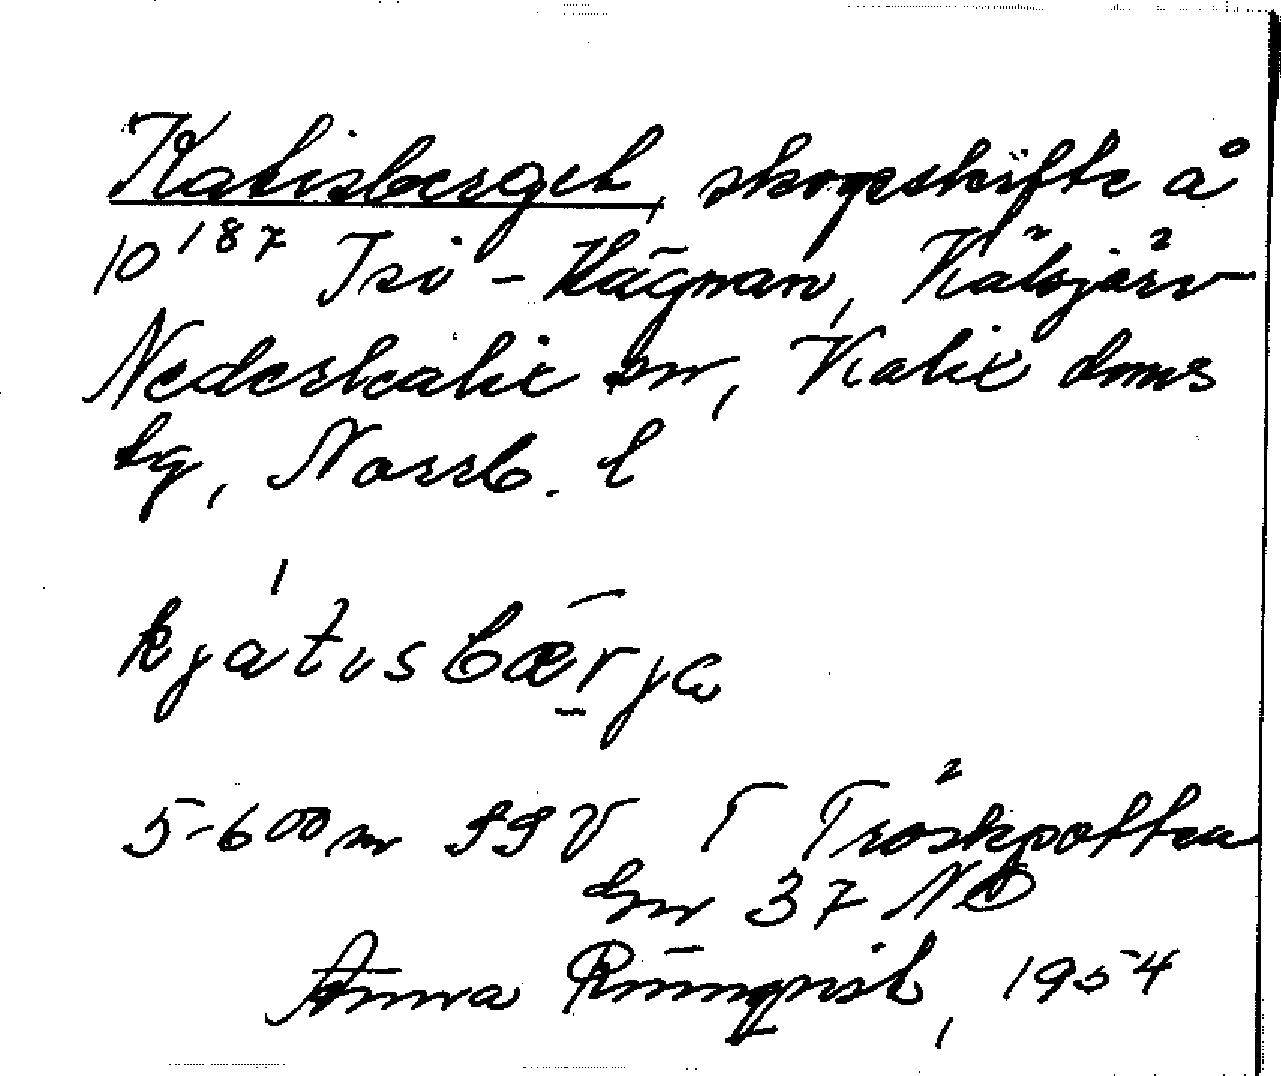 Katisberget, skogsskifte å
10¹⁸⁷ Isö-Kägman, Kälsjärv
Nederkalix sn, Kalix doms
tg, Norrb. l
kjátisbærja
5-600 m SSV T Tröskpotten
Gm 37 NO
Anna Rönnqvist, 1954